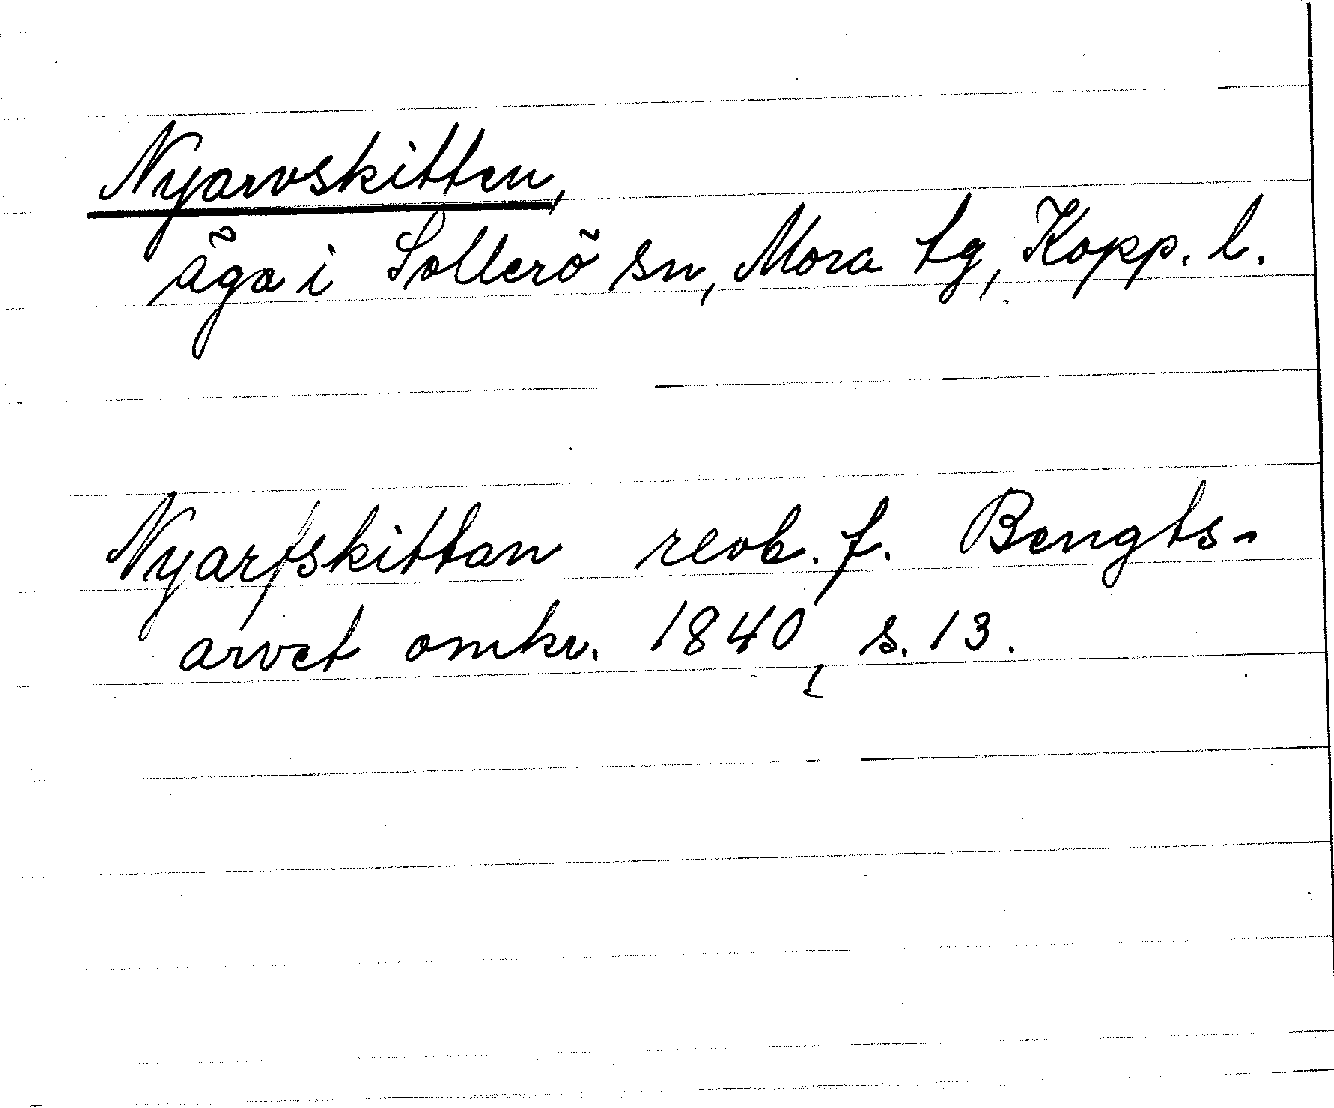 Nyarvskitten,
äga i Sollerö sn, Mora tg, Kopp. l.
Nyarfskittan revb. f. Bengts-
arvet omkr. 1840, s. 13.